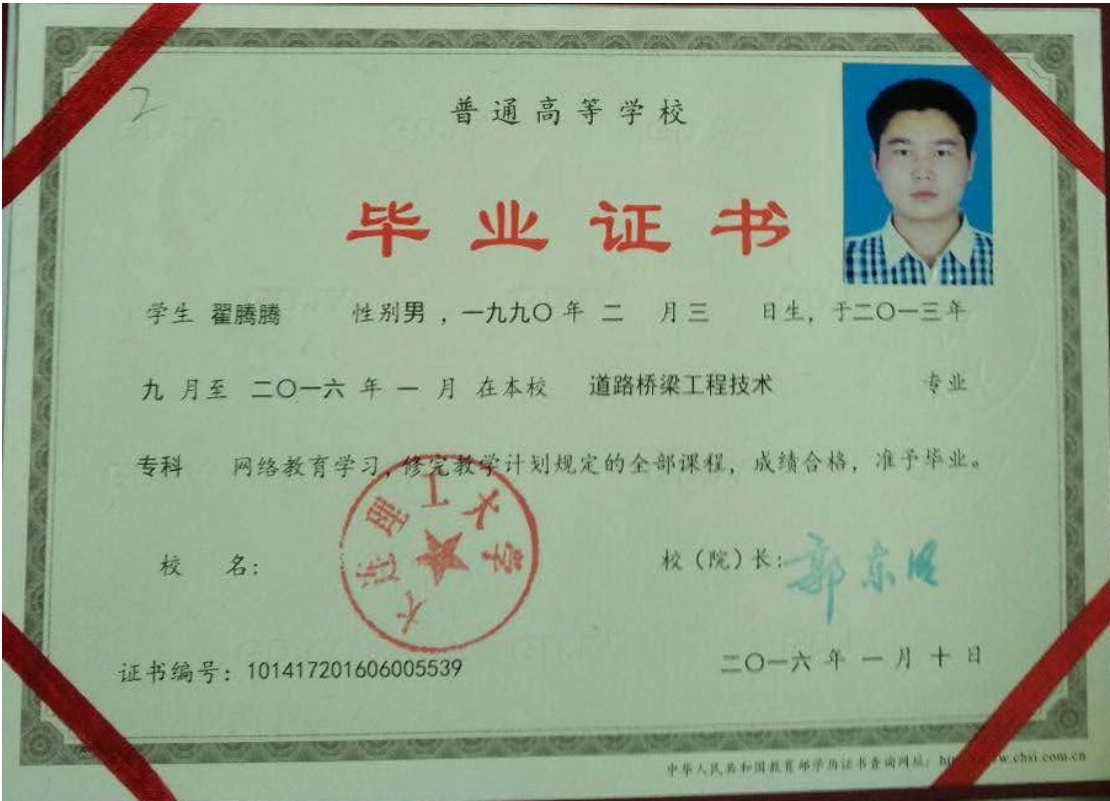 2
普通高等学校
毕业证书
学生 翟腾腾 性别男，一九九〇年 二 月三 日生，于二〇一三年
九 月至 二〇一六 年 一 月 在本校 道路桥梁工程技术 专业
专科 网络教育学习，修完教学计划规定的全部课程，成绩合格，准予毕业。
大连理工大学
校 名： 校（院）长：郭东明
证书编号：101417201606005539 二〇一六 年 一 月 十 日
中华人民共和国教育部学历证书查询网址：
w.chsi.com.cn